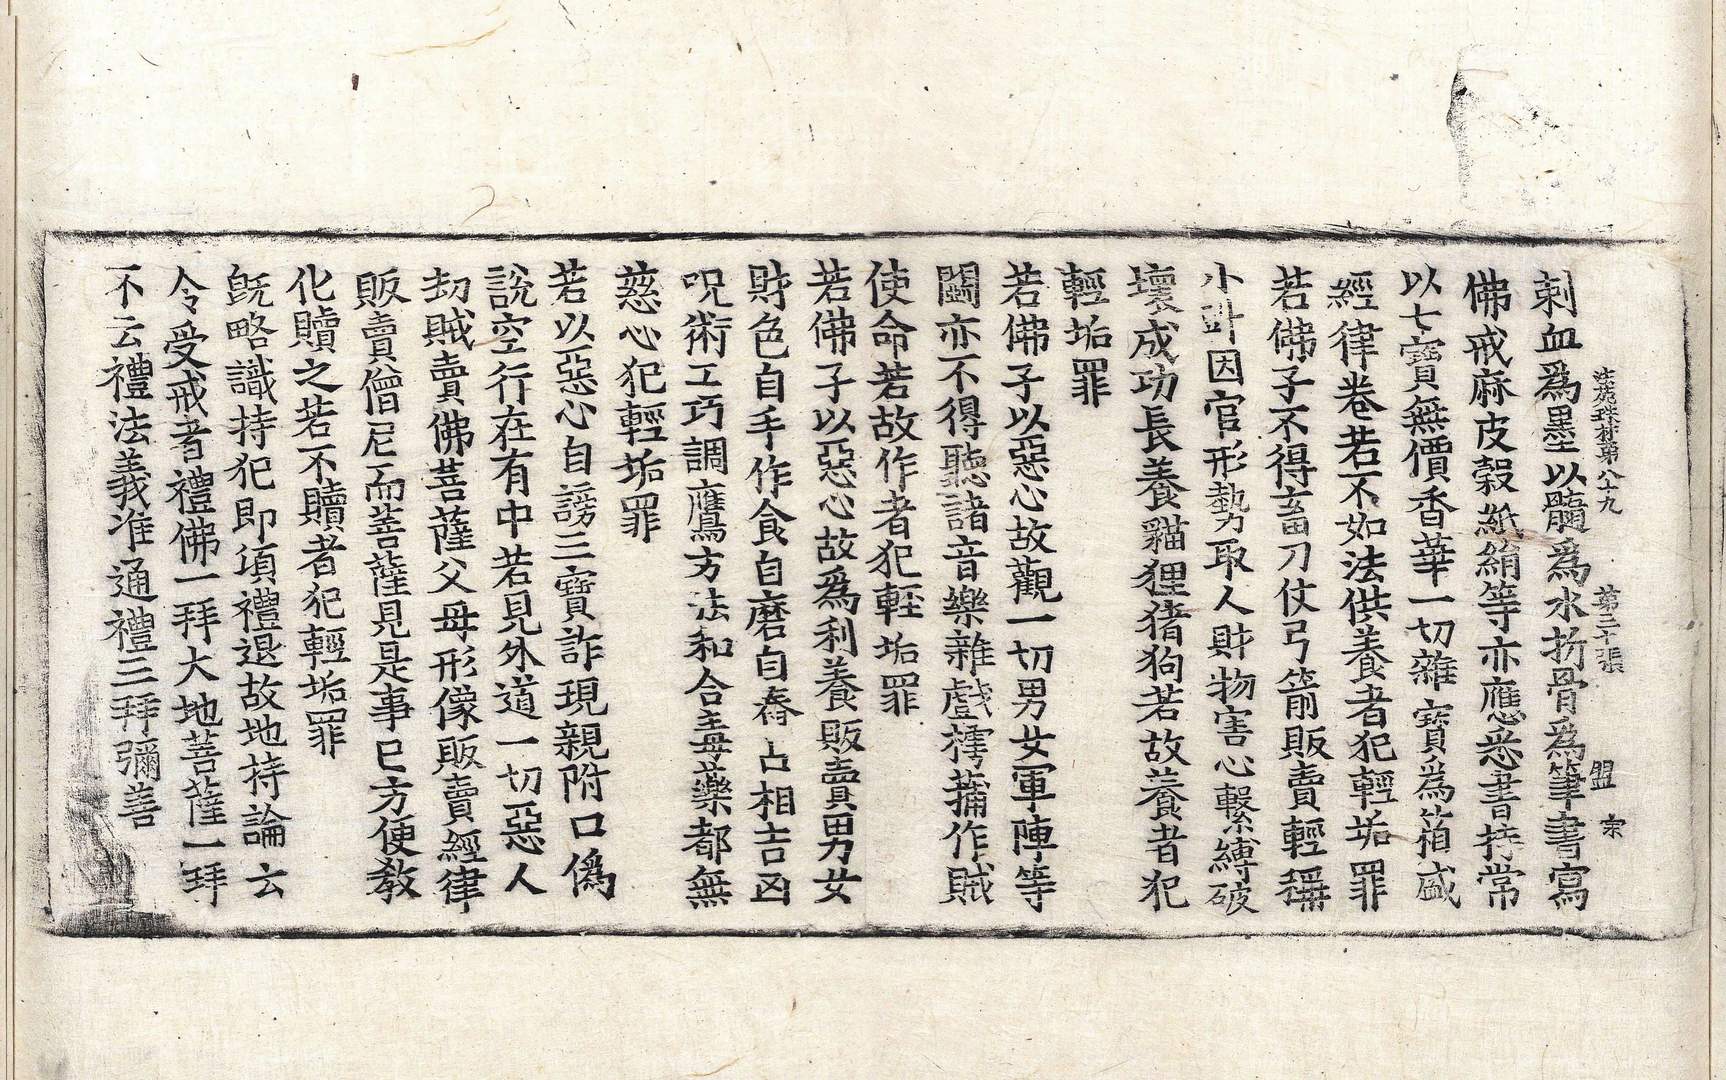 法苑珠林第八十九 第二十張 盟 宗
刺血爲墨以髓爲水扸骨爲筆書寫
佛戒麻皮穀紙絹等亦應悉書持常
以七寶無價香華一切雜寶爲箱盛
經律卷若不如法供養者犯輕垢罪
若佛子不得畜刀仗弓箭販賣輕秤
小斗因官形勢取人財物害心繫縛破
壞成功長養貓狸猪狗若故養者犯
輕垢罪
若佛子以惡心故觀一切男女軍陣等
鬪亦不得聽諸音樂雜戲摴蒱作賊
使命若故作者犯輕垢罪
若佛子以惡心故爲利養販賣男女
財色自手作食自磨自舂占相吉凶
呪術工巧調鷹方法和合毒藥都無
慈心犯輕垢罪
若以惡心自謗三寶詐現親附口偽
說空行在有中若見外道一切惡人
劫賊賣佛菩薩父母形像販賣經律
販賣僧尼而菩薩見是事已方便教
化贖之若不贖者犯輕垢罪
旣略識持犯即須禮退故地持論云
令受戒者禮佛一拜大地菩薩一拜
不云禮法義准通禮三拜彌善